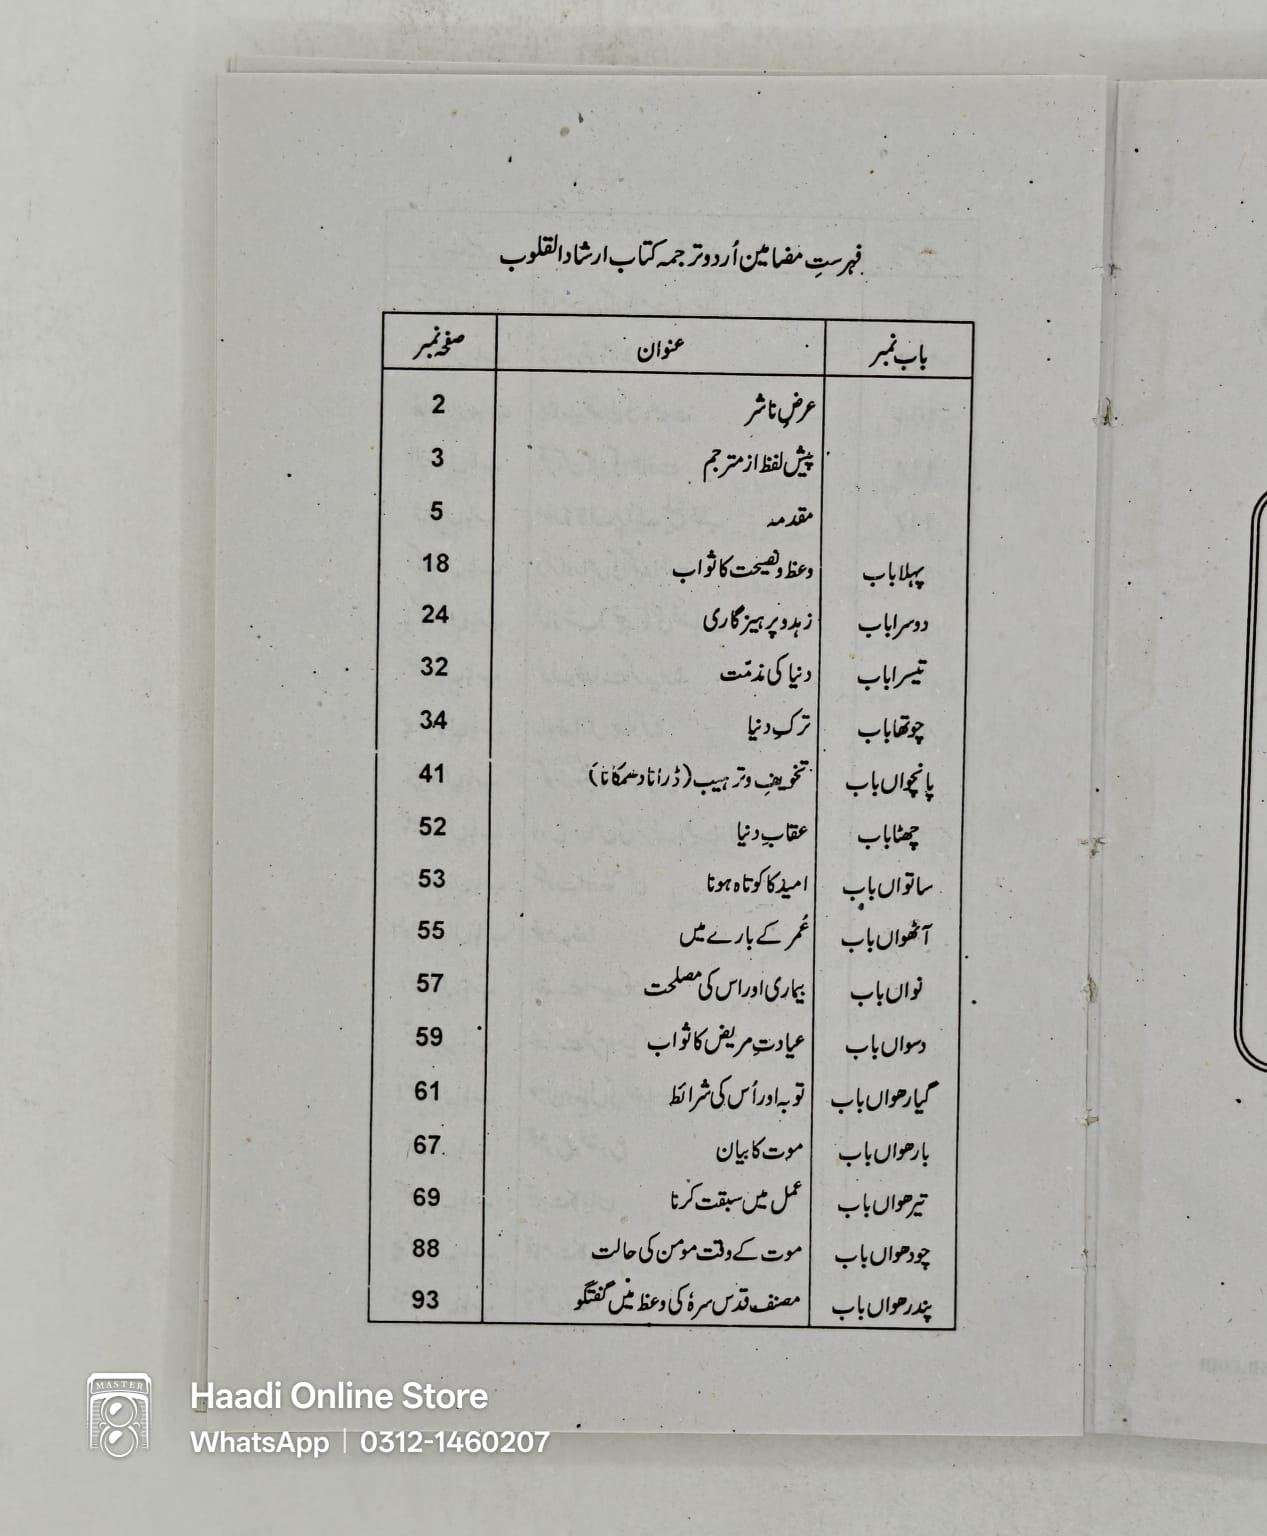 فہرستِ مضامین اُردو ترجمہ کتاب ارشاد القلوب
باب نمبر عنوان صفحہ نمبر
عرضِ ناشر 2
پیش لفظ از مترجم 3
مقدمہ 5
پہلا باب وعظ و نصیحت کا ثواب 18
دوسرا باب زہد و پرہیزگاری 24
تیسرا باب دنیا کی مذمّت 32
چوتھا باب ترکِ دنیا 34
پانچواں باب تخویف و ترہیب (ڈرانا دھمکانا) 41
چھٹا باب عقابِ دنیا 52
ساتواں باب امید کا کوتاہ ہونا 53
آٹھواں باب عُمر کے بارے میں 55
نواں باب بیماری اور اس کی مصلحت 57
دسواں باب عیادتِ مریض کا ثواب 59
گیارھواں باب توبہ اور اُس کی شرائط 61
بارھواں باب موت کا بیان 67
تیرھواں باب عمل میں سبقت کرنا 69
چودھواں باب موت کے وقت مومن کی حالت 88
پندرھواں باب مصنف قدس سرہٗ کی وعظ میں گفتگو 93
MASTER
Haadi Online Store
WhatsApp | 0312-1460207